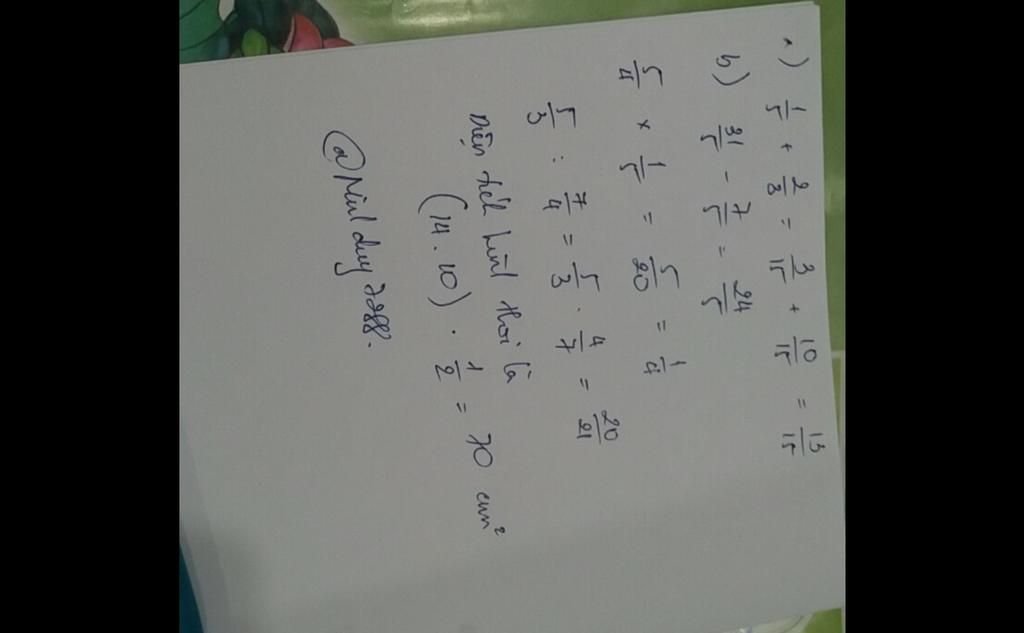 a) 1/5 + 2/3 = 3/15 + 10/15 = 13/15
b) 31/5 - 7/5 = 24/5
5/4 × 1/5 = 5/20 = 1/4
5/3 : 7/4 = 5/3 . 4/7 = 20/21
Diện tích hình thoi là
(14 . 10) . 1/2 = 70 cm²
@Minhduy7288.